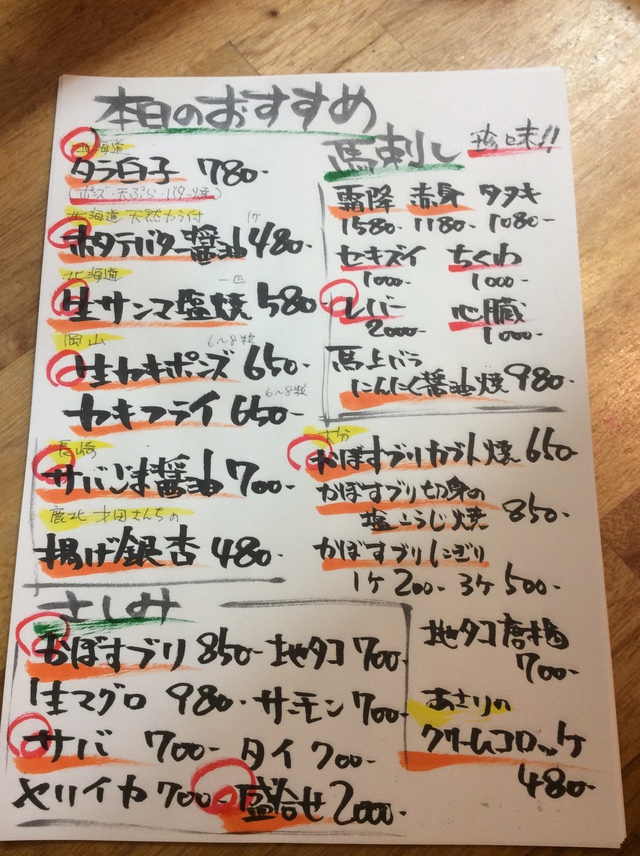 本日のおすすめ
北海道
タラ白子 780-
(ポン酢・天ぷら・バター焼)
北海道 天然カラ付 1ヶ
ホタテバター醤油 480-
北海道 一匹
生サンマ塩焼 580-
岡山 6〜8粒
生カキポンズ 650-
6〜8粒
カキフライ 650-
長崎
サバごま醤油 700-
鹿北 才田さんちの
揚げ銀杏 480-
馬刺し 珍味!!
霜降 赤身 タテガキ
1580- 1180- 1080-
セキズイ ちくわ
1000- 1000-
レバー 心臓
2000- 1000-
馬上バラ
にんにく醤油焼 980-
大分
かぼすブリカブト焼 650-
かぼすブリ切身の
塩こうじ焼 850-
かぼすブリにぎり
1ヶ 200- 3ヶ 500-
さしみ
かぼすブリ 850- 地タコ 700-
生マグロ 980- サーモン 700-
サバ 700- タイ 700-
ヤリイカ 700- 盛合せ 2000-
地タコ唐揚
700-
あさりの
クリームコロッケ
480-